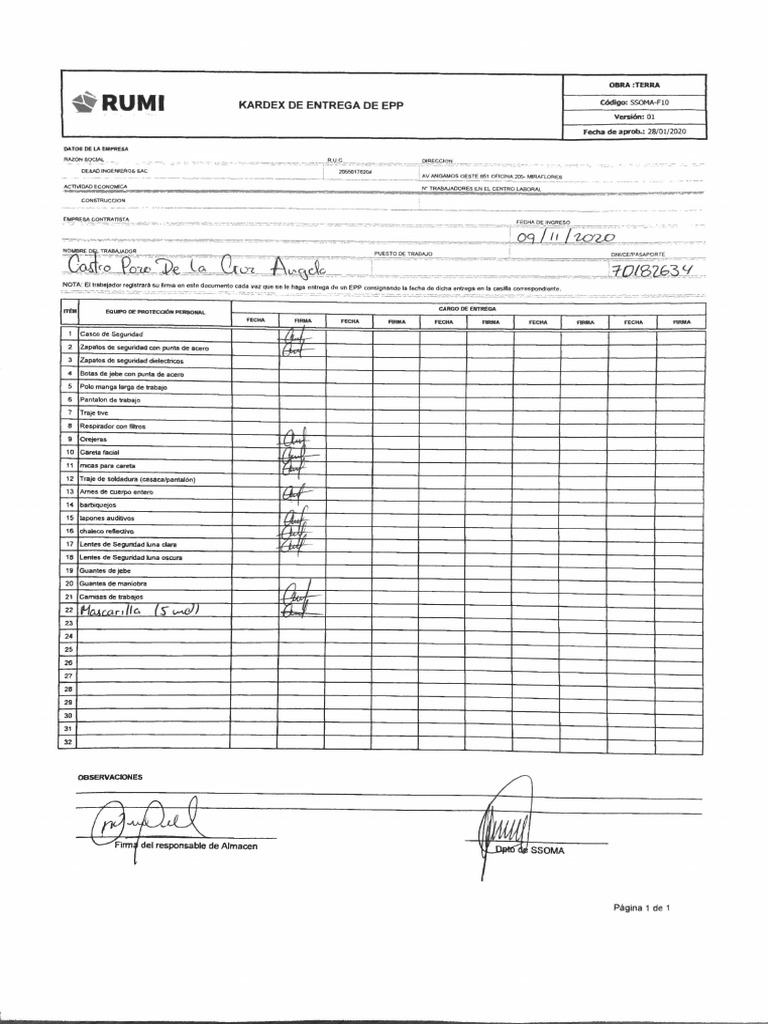 RUMI
KARDEX DE ENTREGA DE EPP
OBRA :TERRA
Código: SSOMA-F10
Versión: 01
Fecha de aprob.: 28/01/2020
DATOS DE LA EMPRESA
RAZON SOCIAL R.U.C. DIRECCION
DEAAD INGENIEROS SAC AV ANGAMOS OESTE 651 OFICINA 205- MIRAFLORES
ACTIVIDAD ECONOMICA N° TRABAJADORES EN EL CENTRO LABORAL
CONSTRUCCION
EMPRESA CONTRATISTA FECHA DE INGRESO
09/11/2020
NOMBRE DEL TRABAJADOR PUESTO DE TRABAJO DNI/CE/PASAPORTE
Castro Pozo De La Cruz Angelo 70182634
NOTA: El trabajador registrará su firma en este documento cada vez que se le haga entrega de un EPP consignando la fecha de dicha entrega en la casilla correspondiente.
ITEM EQUIPO DE PROTECCIÓN PERSONAL CARGO DE ENTREGA
FECHA FIRMA FECHA FIRMA FECHA FIRMA FECHA FIRMA FECHA FIRMA
1 Casco de Seguridad
2 Zapatos de seguridad con punta de acero
3 Zapatos de seguridad dielectricos
4 Botas de jebe con punta de acero
5 Polo manga larga de trabajo
6 Pantalon de trabajo
7 Traje tive
8 Respirador con filtros
9 Orejeras
10 Careta facial
11 micas para careta
12 Traje de soldadura (casaca/pantalón)
13 Arnes de cuerpo entero
14 barbiquejos
15 tapones auditivos
16 chaleco reflectivo
17 Lentes de Seguridad luna clara
18 Lentes de Seguridad luna oscura
19 Guantes de jebe
20 Guantes de maniobra
21 Camisas de trabajos
22 Mascarilla (5 und)
23
24
25
26
27
28
29
30
31
32
OBSERVACIONES
Firma del responsable de Almacen
Dpto de SSOMA
Página 1 de 1